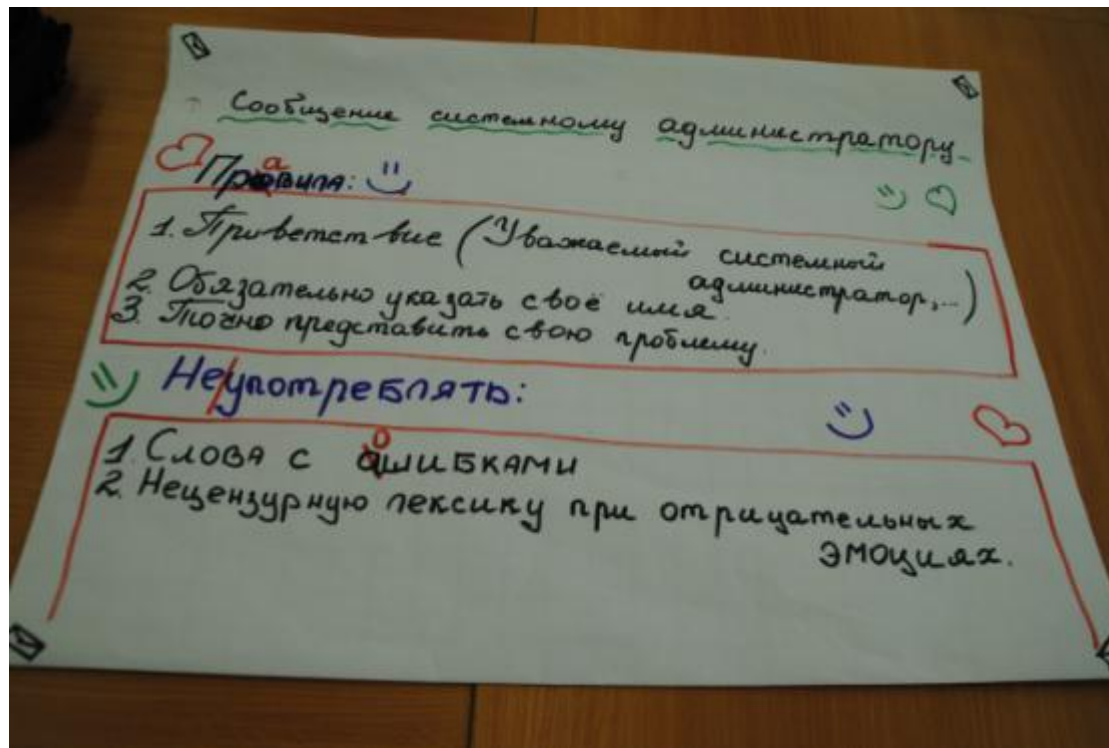 Сообщение системному администратору
Правила:
1. Приветствие (Уважаемый системный
администратор,...)
2. Обязательно указать своё имя.
3. Точно представить свою проблему.
Не/употреблять:
1. Слова с ошибками
2. Нецензурную лексику при отрицательных
эмоциях.